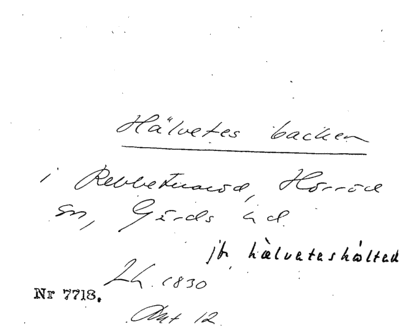 Hälvetes backen
i Rebbetuaröd, Hörröd
sn, Gärds hd.
jfr hälveteshålted
Lh. 1830
Nr 7718.
Akt 12